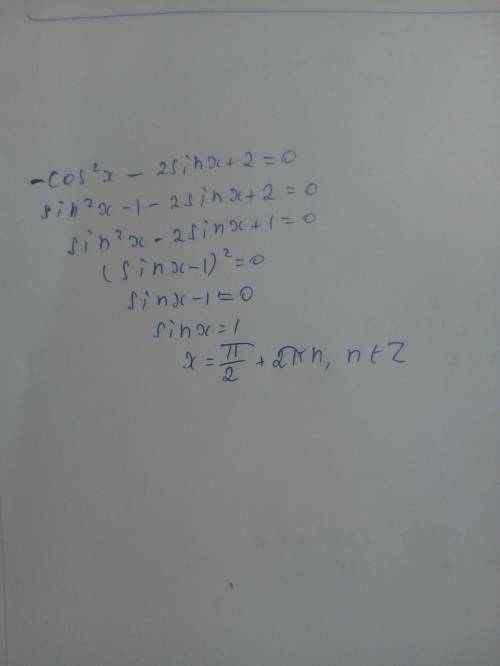 -cos²x - 2sinx + 2 = 0
sin²x - 1 - 2sinx + 2 = 0
sin²x - 2sinx + 1 = 0
(sinx - 1)² = 0
sinx - 1 = 0
sinx = 1
x = π/2 + 2πn, n ∈ Z